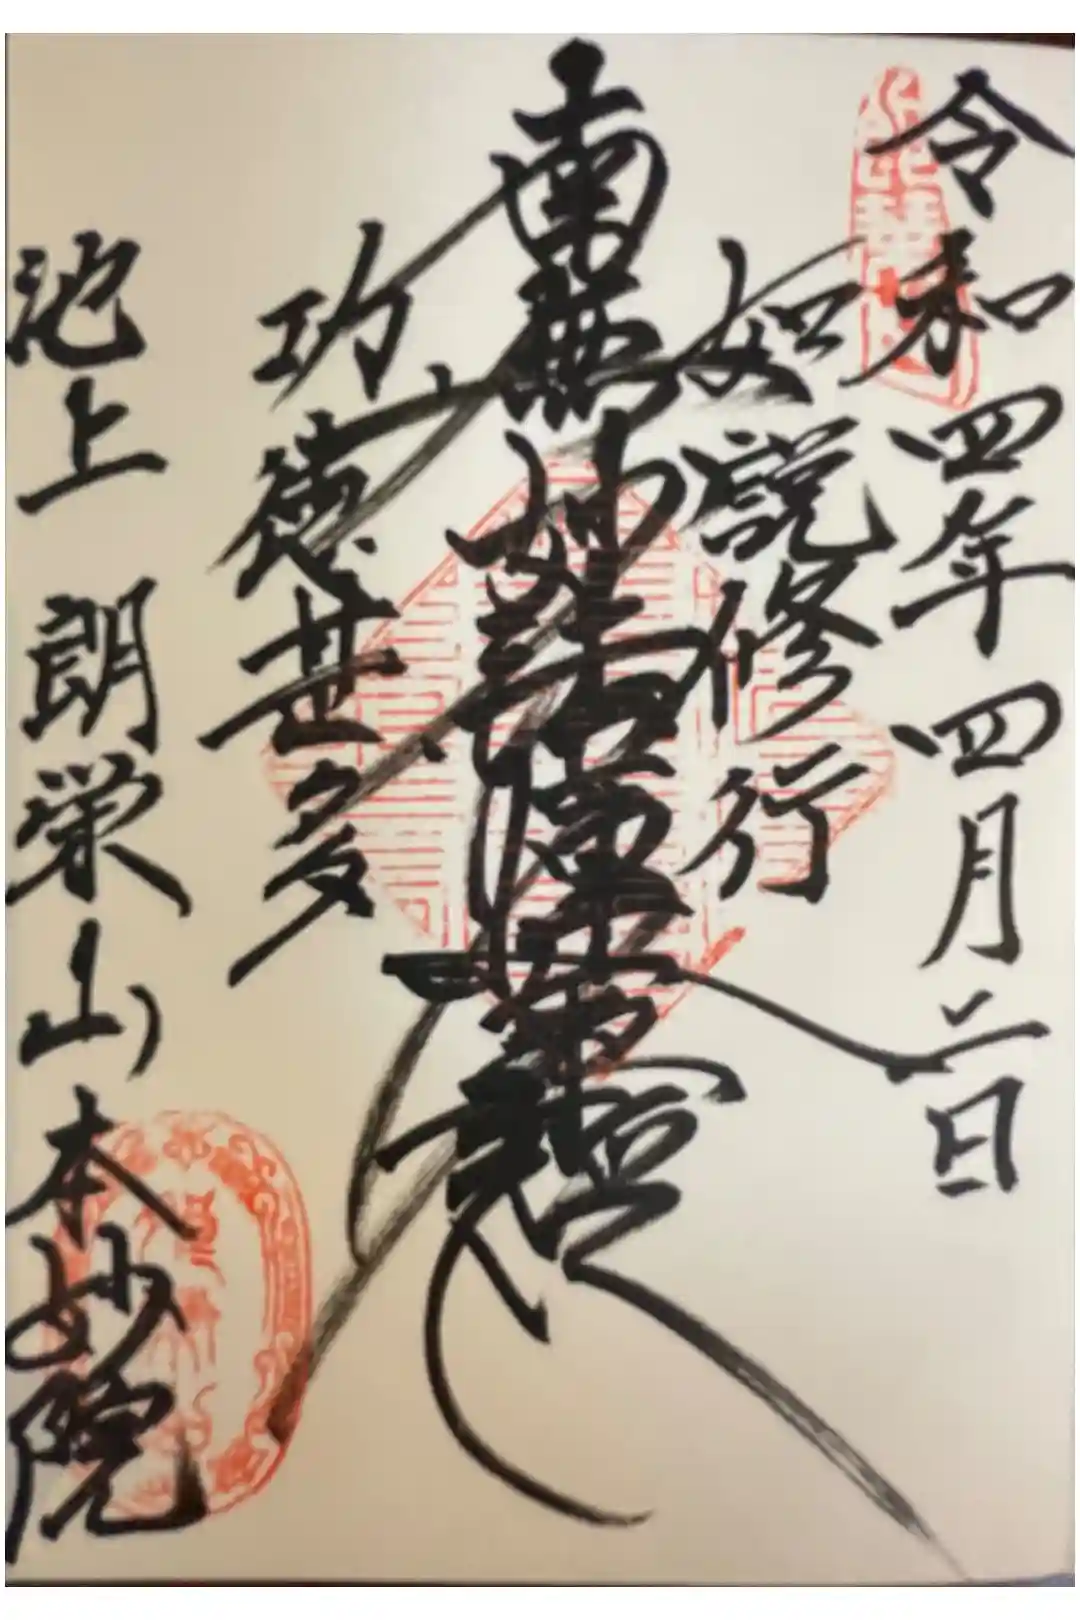 令和四年四月二日
如説修行
南無妙法蓮華經
功徳甚多
池上 朗栄山本妙院